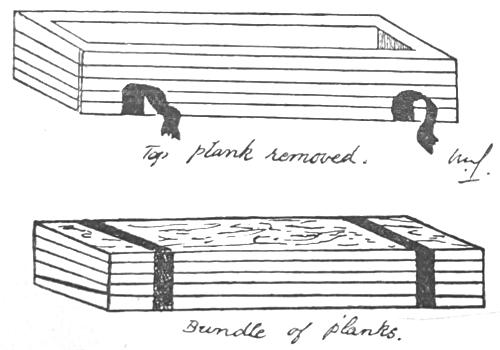 Top plank removed.
Bundle of planks.